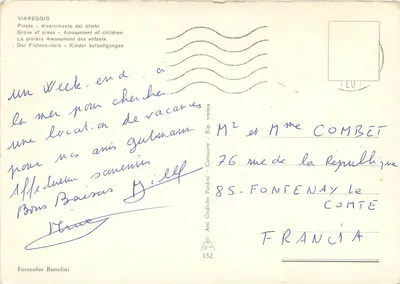 VIAREGGIO
Pineta - divertimento dei bimbi
Grove of pines - Amusement of children
La pinière Amusement des enfants
Der Fichtenhain - Kinder belustigungen
un Week-end à
la mer pour chercher
une location de vacances
pour nos amis
Affectueux souvenirs
Bons Baisers
Arti Grafiche
Rip. vietata
132
Fotocolor Bertolini
Mr et Mme COMBET
76 rue de la République
85-FONTENAY le
COMTE
FRANCIA